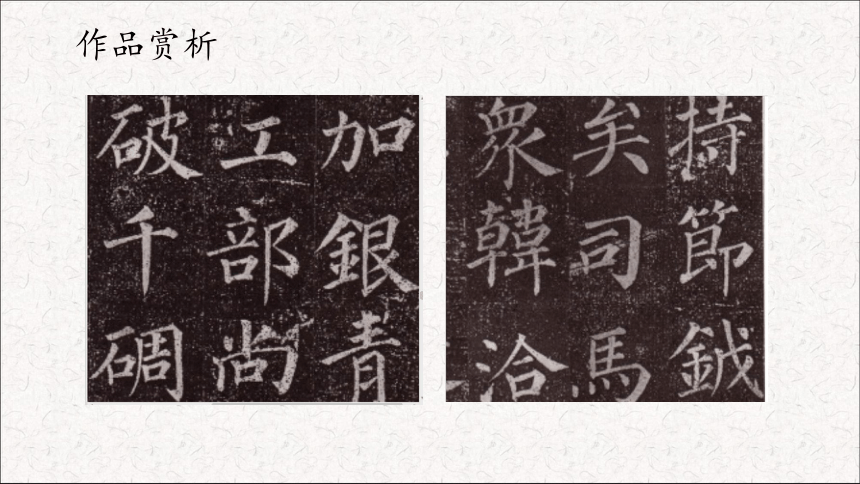 作品赏析
加銀青
工部尚
破千碉
持節鉞
矣司馬
眾韓洽